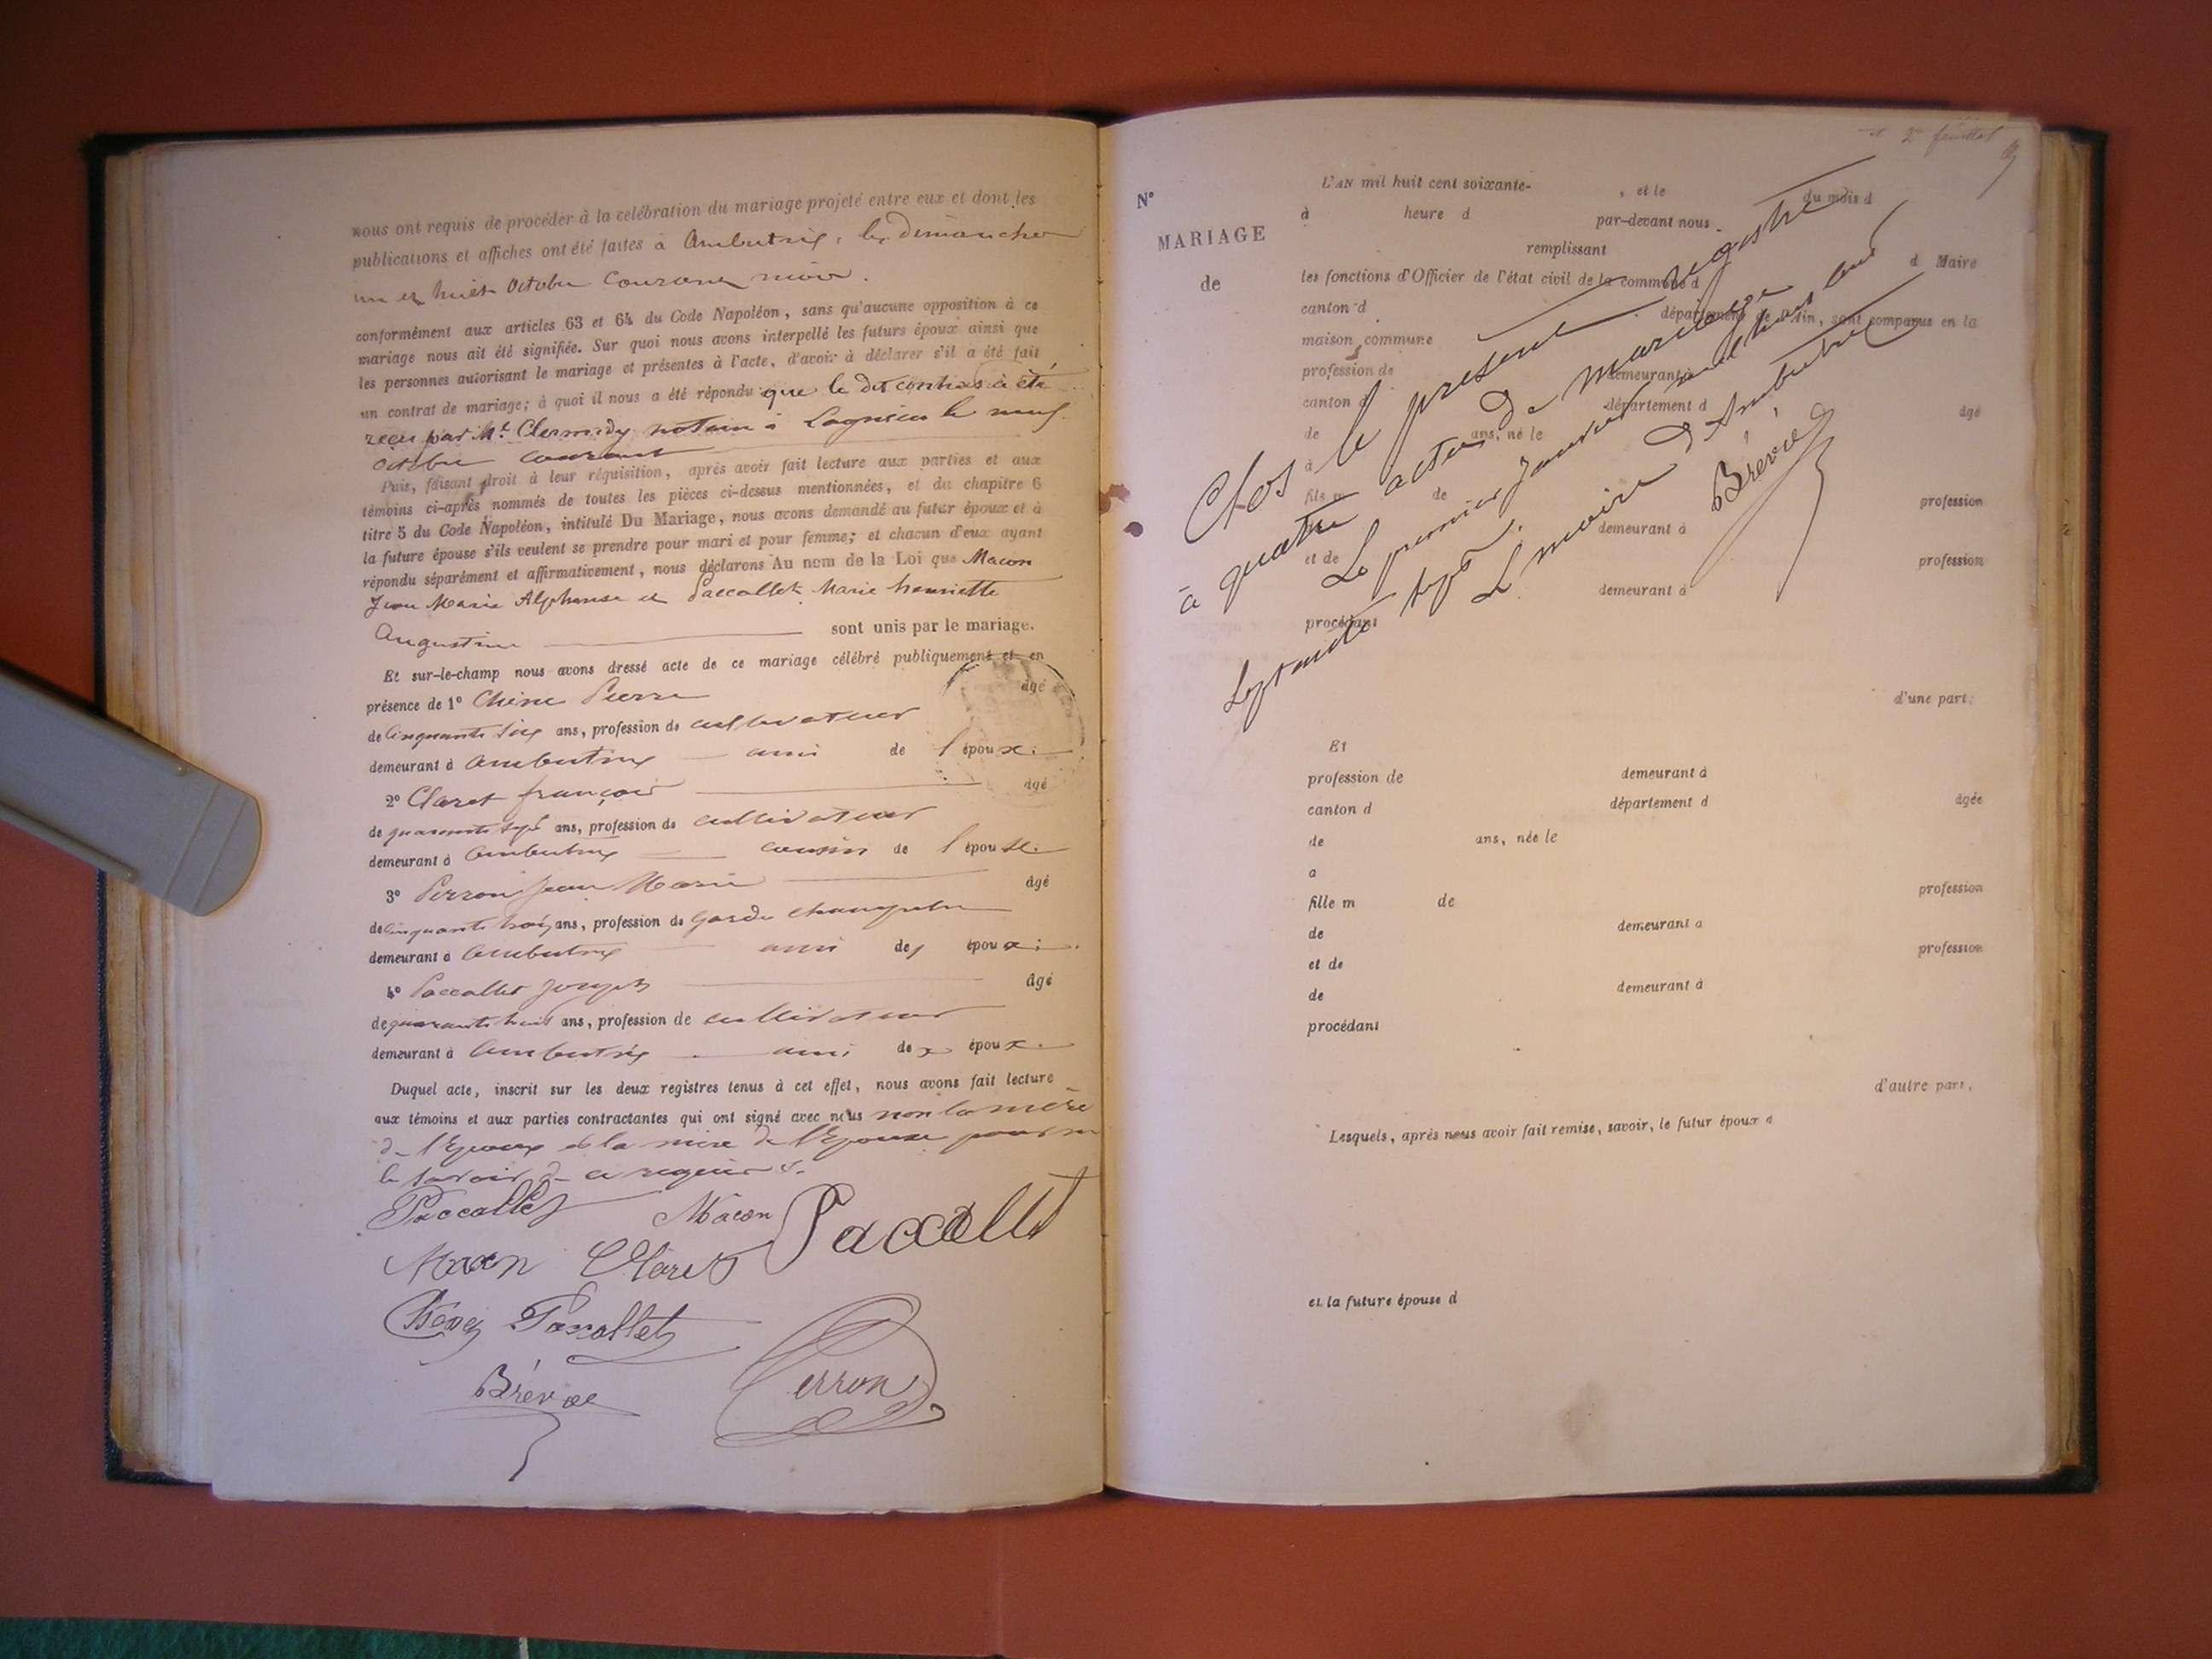 nous ont requis de procéder à la célébration du mariage projeté entre eux et dont les
publications et affiches ont été faites à Ambutrix, les dimanches
un et huit Octobre courant mois.
conformément aux articles 63 et 64 du Code Napoléon, sans qu'aucune opposition à ce
mariage nous ait été signifiée. Sur quoi nous avons interpellé les futurs époux ainsi que
les personnes autorisant le mariage et présentes à l'acte, d'avoir à déclarer s'il a été fait
un contrat de mariage; à quoi il nous a été répondu que le dit contrat a été
reçu par Mt. notaire à Lagnieu le neuf
Octobre courant
Puis, faisant droit à leur réquisition, après avoir fait lecture aux parties et aux
témoins ci-après nommés de toutes les pièces ci-dessus mentionnées, et du chapitre 6
titre 5 du Code Napoléon, intitulé Du Mariage, nous avons demandé au futur époux et à
la future épouse s'ils veulent se prendre pour mari et pour femme; et chacun d'eux ayant
répondu séparément et affirmativement, nous déclarons Au nom de la Loi que Macon
Jean Marie Alphonse et Paccallet Marie henriette
Augustine sont unis par le mariage.
Et sur-le-champ nous avons dressé acte de ce mariage célébré publiquement et en
présence de 1° Chêne Pierre âgé
de Cinquante six ans, profession de cultivateur
demeurant à Ambutrix ami de l'époux.
2° Claret françois âgé
de quarante sept ans, profession de cultivateur
demeurant à Ambutrix cousin de l'épouse.
3° Perron Jean Marie âgé
de cinquante trois ans, profession de garde champêtre
demeurant à Ambutrix ami des époux;
4° Paccallet Joseph âgé
de quarante huit ans, profession de cultivateur
demeurant à Ambutrix ami des époux.
Duquel acte, inscrit sur les deux registres tenus à cet effet, nous avons fait lecture
aux témoins et aux parties contractantes qui ont signé avec nous non la mère
de l'Epoux et la mère de l'Epouse pour ne
le savoir de ce requises.
Paccallet Macon Paccallet
Macon Claret
Chêne Paccallet
Brévoe Perron
et 2e feuillet
N°
MARIAGE
de
L'AN mil huit cent soixante- , et le du mois d
à heure d par-devant nous
remplissant
les fonctions d'Officier de l'état civil de la commune d
canton d département de l'Ain, sont comparus en la
maison commune d Maire
profession de demeurant à
canton d département d âgé
de ans, né le
à
fils m de profession
demeurant à
et de profession
demeurant à
procédant
d'une part;
Clos le présent registre
à quatre actes de mariage
Le premier Janvier mil huit cent
Septante sept.
Le maire d'Ambutrix
Brévoe
Et
profession de demeurant à
canton d département d âgée
de ans, née le
à
fille m de profession
de demeurant à
et de profession
de demeurant à
procédant
d'autre part,
Lesquels, après nous avoir fait remise, savoir, le futur époux d
et la future épouse d